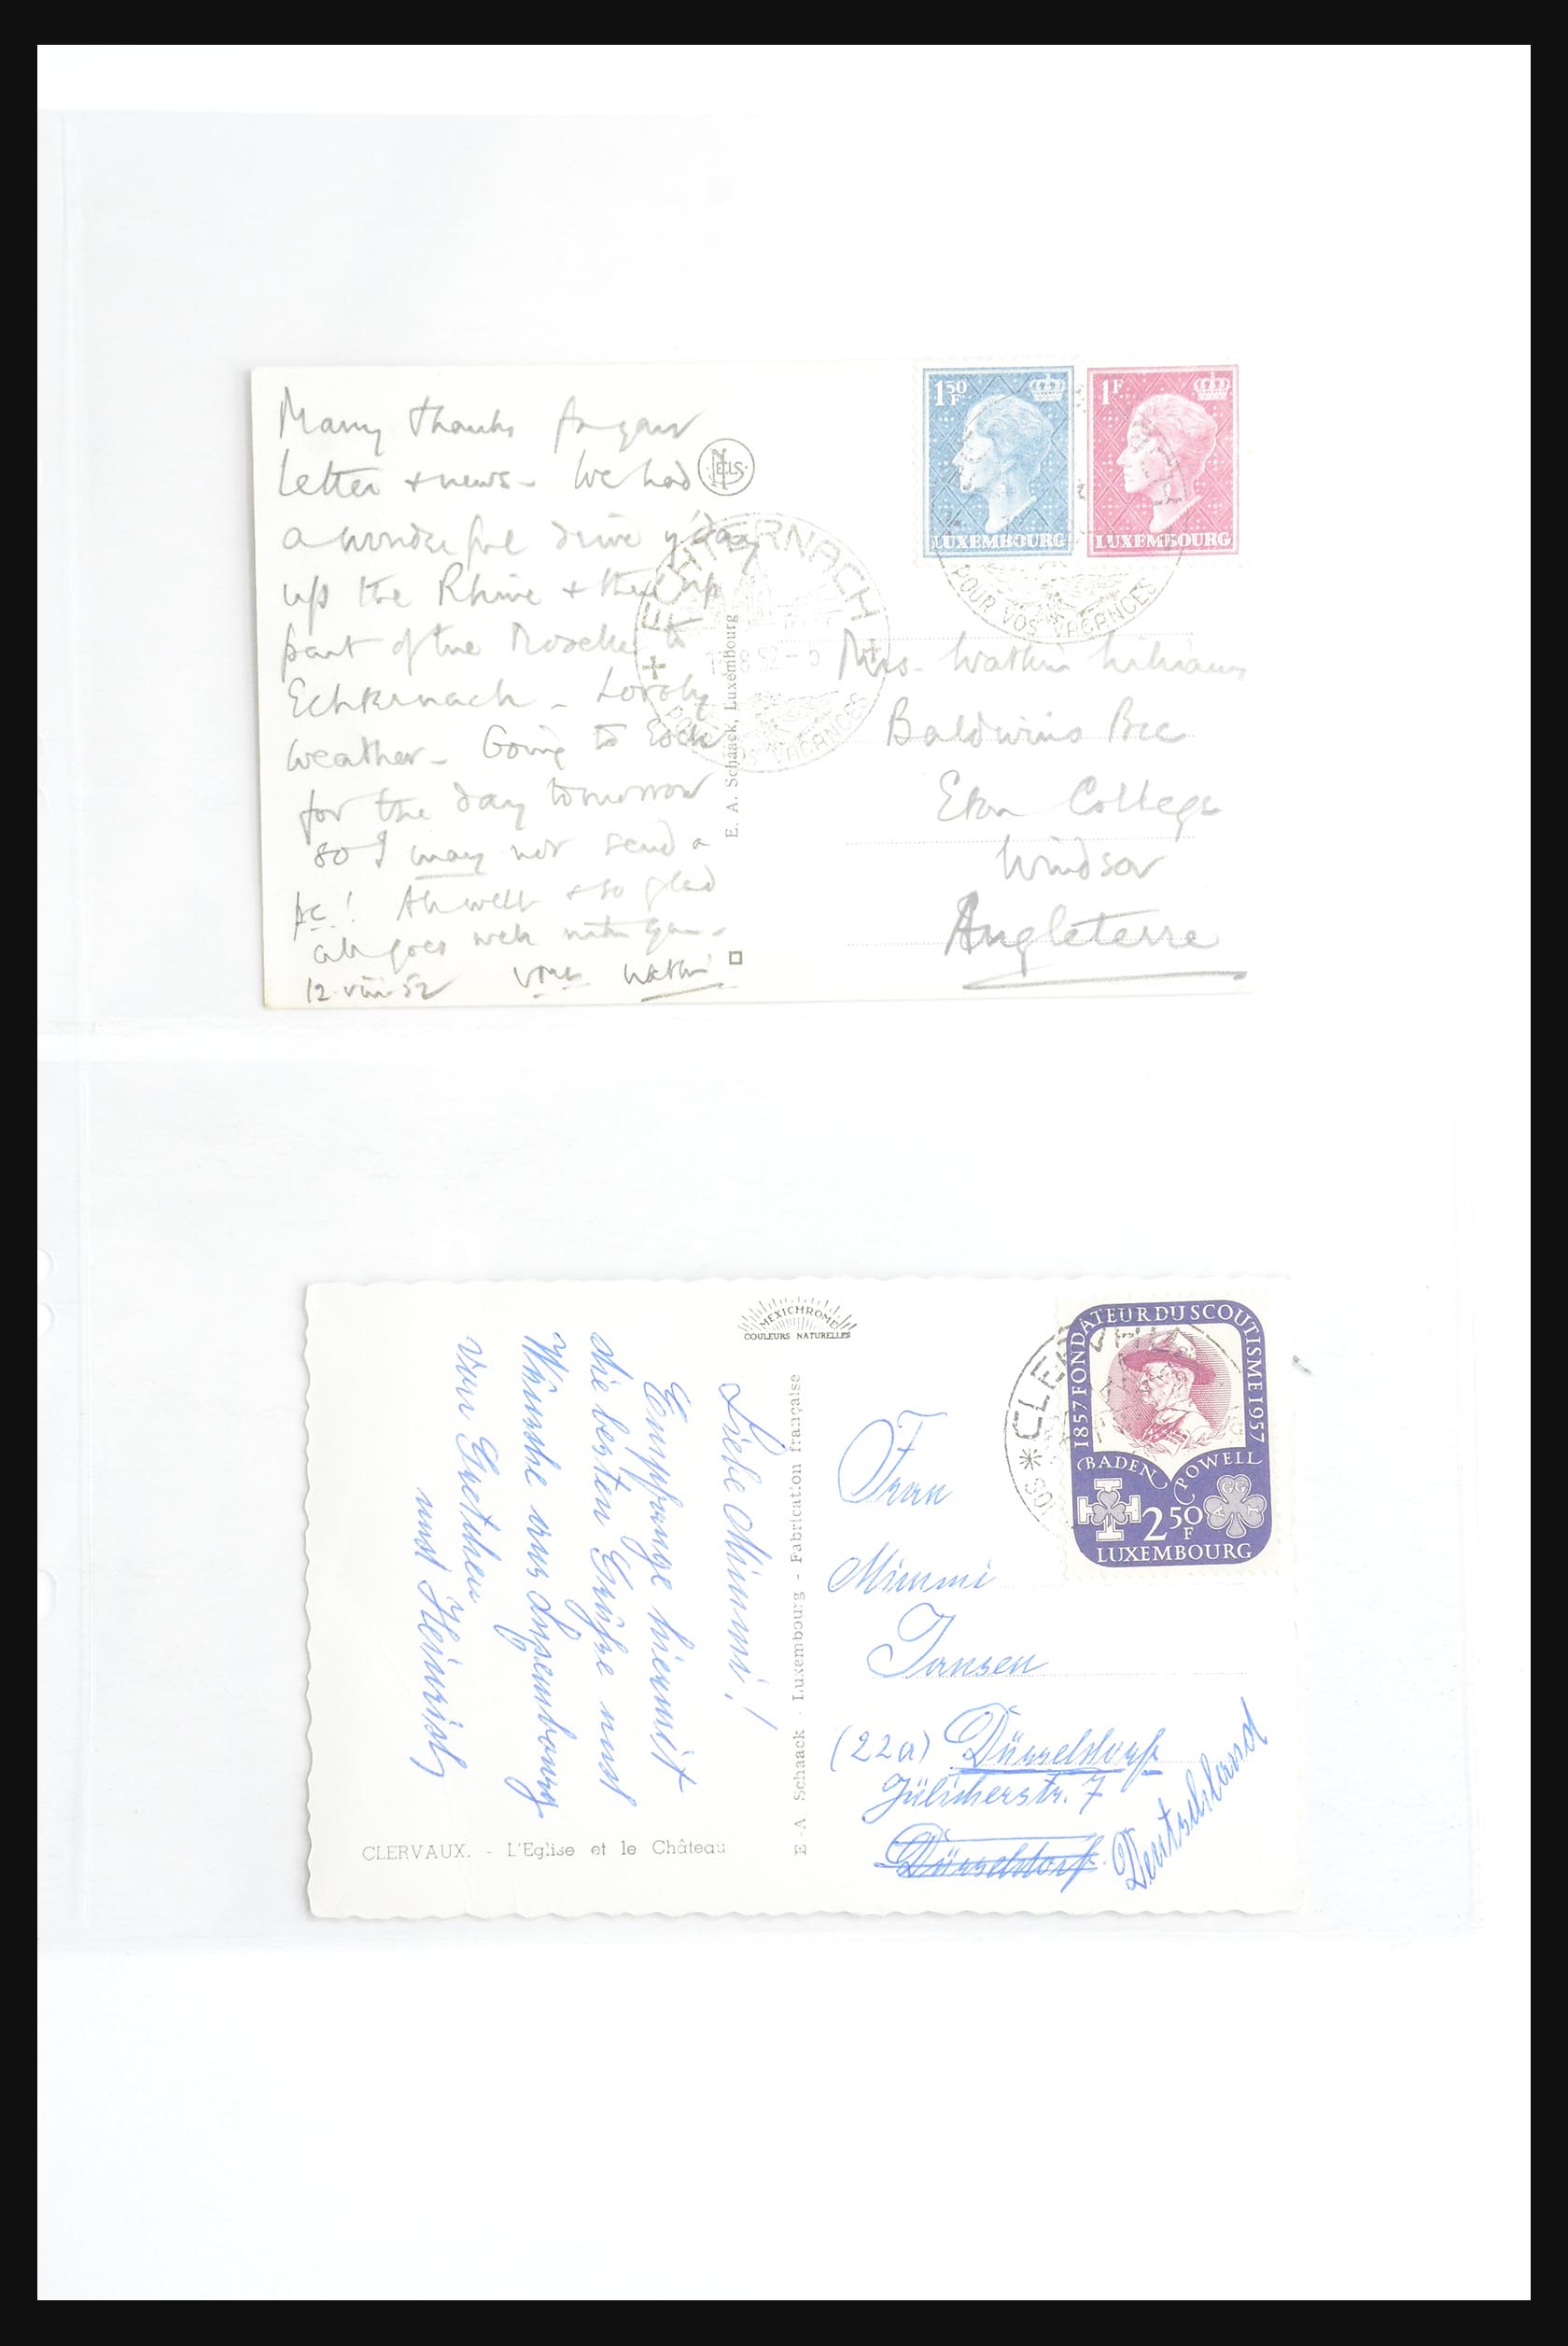 Many thanks for your
letter + news - We had
a wonderful drive y'day
up the Rhine + then up
part of the Moselle to
Echternach - Lovely
weather - Going to Esch
for the day tomorrow
so I may not send a
pc! All well + so glad
all goes well with you -
12-viii-52
NELS
E. A. Schaack, Luxembourg
ECHTERNACH
8 52 -
POUR VOS VACANCES
1 50 F
LUXEMBOURG
1 F
LUXEMBOURG
POUR VOS VACANCES
Mrs. Watkin Williams
Baldwins Bec
Eton College
Windsor
Angleterre
MEXICHROME
COULEURS NATURELLES
Liebe Mimmi!
Empfange hiermit
die besten Grüße und
Wünsche aus Luxembourg
von Gretchen
und Heinrich
CLERVAUX. - L'Eglise et le Château
E-A Schaack - Luxembourg - Fabrication française
1857 FONDATEUR DU SCOUTISME 1957
BADEN POWELL
AGGL
2 50 F
LUXEMBOURG
Frau
Mimmi
Jansen
(22a) Düsseldorf
Jülicherstr. 7
Düsseldorf
Deutschland